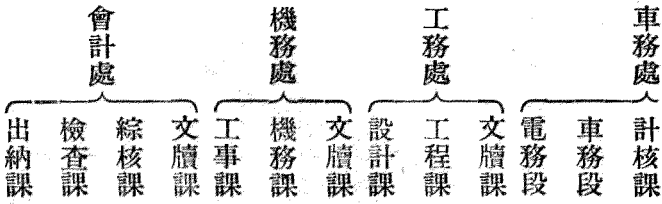 車務處
計核課
車務段
電務段
工務處
文牘課
工程課
設計課
機務處
文牘課
機務課
工事課
會計處
文牘課
綜核課
檢査課
出納課